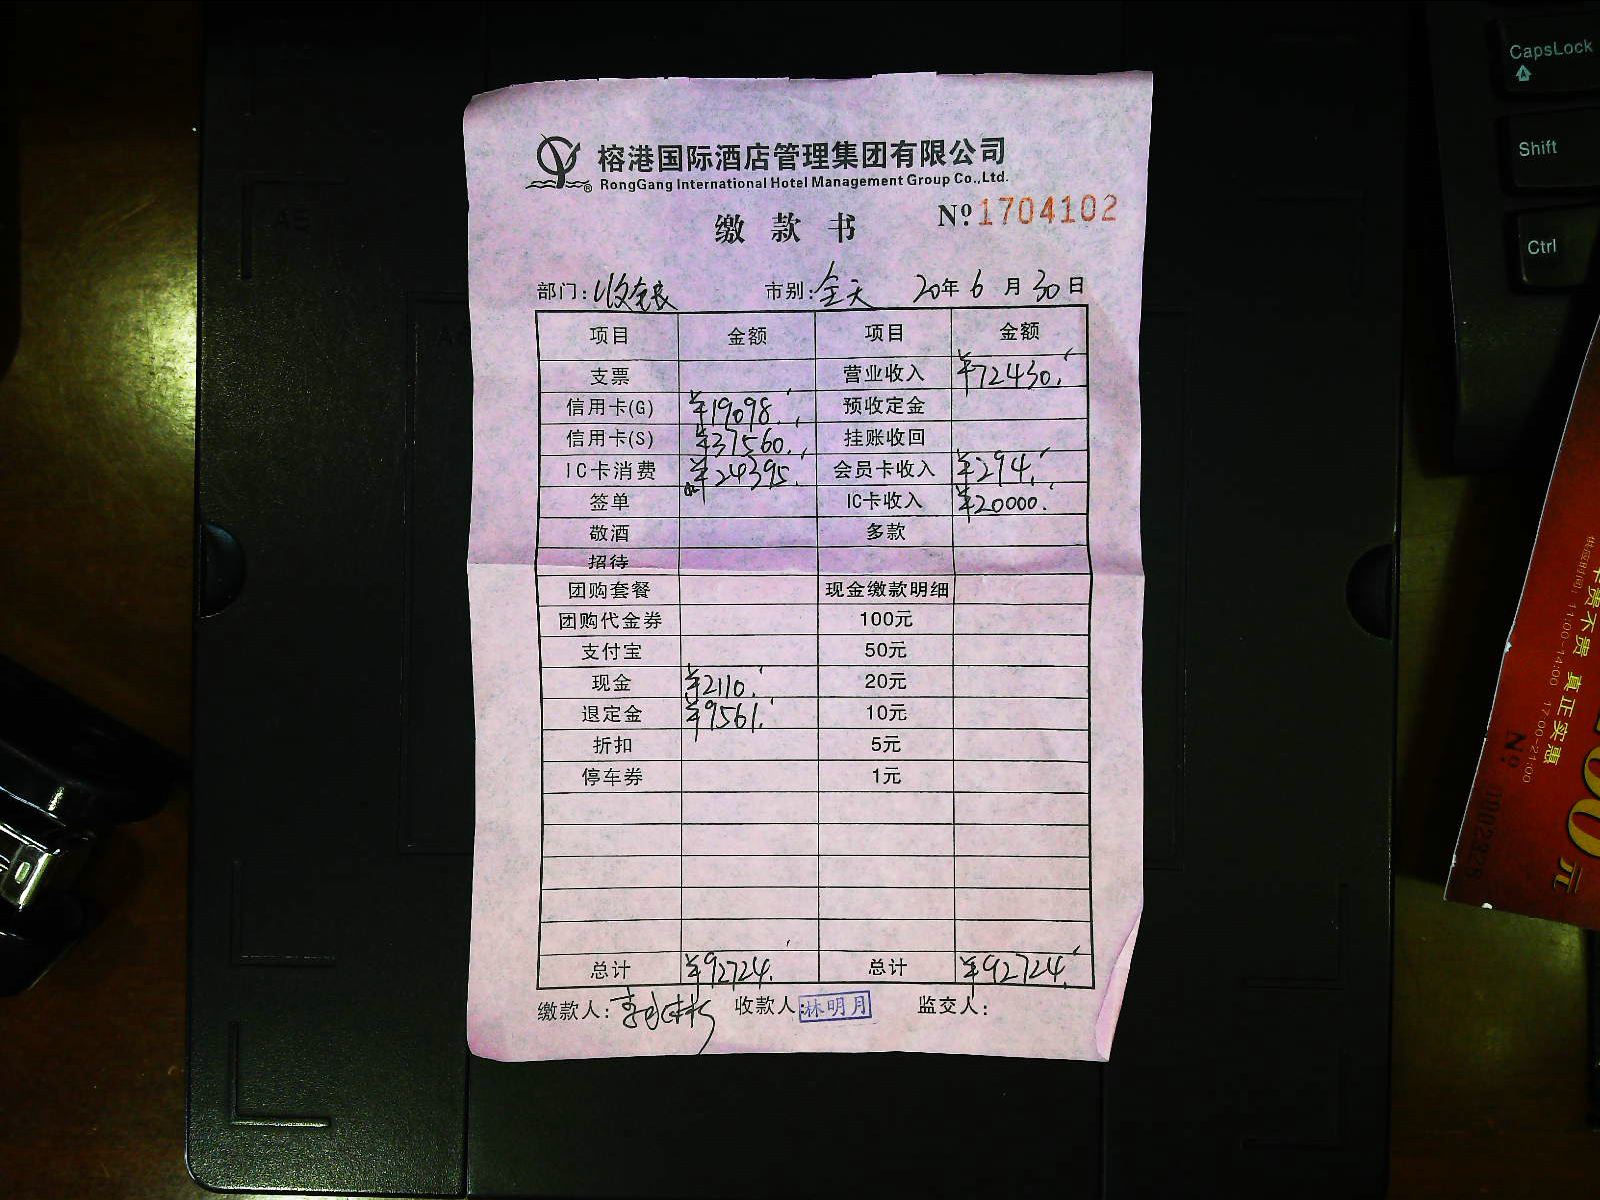 榕港国际酒店管理集团有限公司
RongGang International Hotel Management Group Co.,Ltd.
缴款书
Nº 1704102
部门: 收银 市别: 全天 20年6月30日
项目 金额 项目 金额
支票 营业收入 ¥72430.
信用卡(G) ¥19098. 预收定金
信用卡(S) ¥37560. 挂账收回
IC卡消费 ¥24395. 会员卡收入 ¥294.
签单 IC卡收入 ¥20000.
敬酒 多款
招待
团购套餐 现金缴款明细
团购代金券 100元
支付宝 50元
现金 ¥2110. 20元
退定金 ¥9561. 10元
折扣 5元
停车券 1元
总计 ¥92724. 总计 ¥92724.
缴款人: 收款人: 林明月 监交人:
CapsLock
Shift
Ctrl
供应时间: 11:00-14:00 17:00-21:00
贵不贵 真正实惠
Nº 0002328
00元